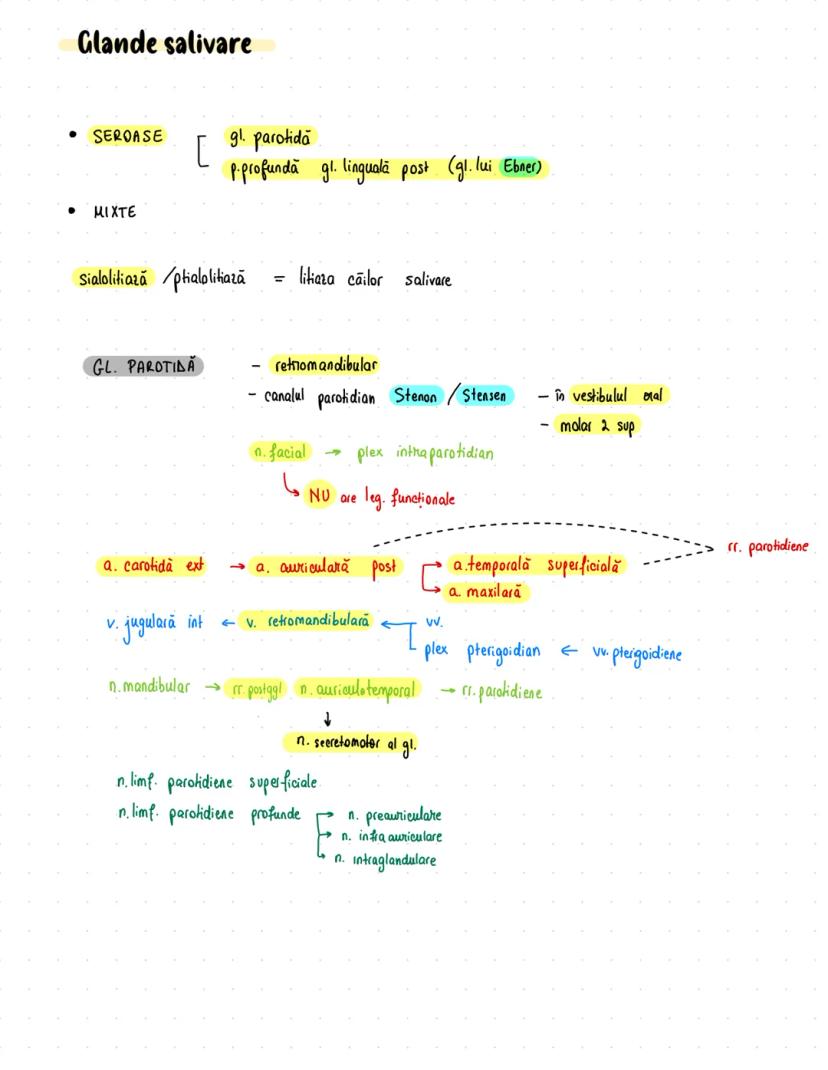 Glande salivare
• SEROASE [ gl. parotidă
p.profundă gl. linguală post (gl. lui Ebner)
• MIXTE
Sialolitiază / ptialolitiază = litiaza căilor salivare
GL. PAROTIDĂ - retromandibular
- canalul parotidian Stenon / Stensen - în vestibulul oral
- molar 2 sup
n. facial → plex intraparotidian
↳ NU are leg. funcționale
rr. parotidiene
a. carotidă ext → a. auriculară post → a. temporală superficială
→ a. maxilară
v. jugulară int ← v. retromandibulară ← vv.
plex pterigoidian ← vv. pterigoidiene
n. mandibular → rr. postggl n. auriculotemporal → rr. parotidiene
↓
n. secretomotor al gl.
n. limf. parotidiene superficiale
n. limf. parotidiene profunde → n. preauriculare
→ n. infraauriculare
↳ n. intraglandulare